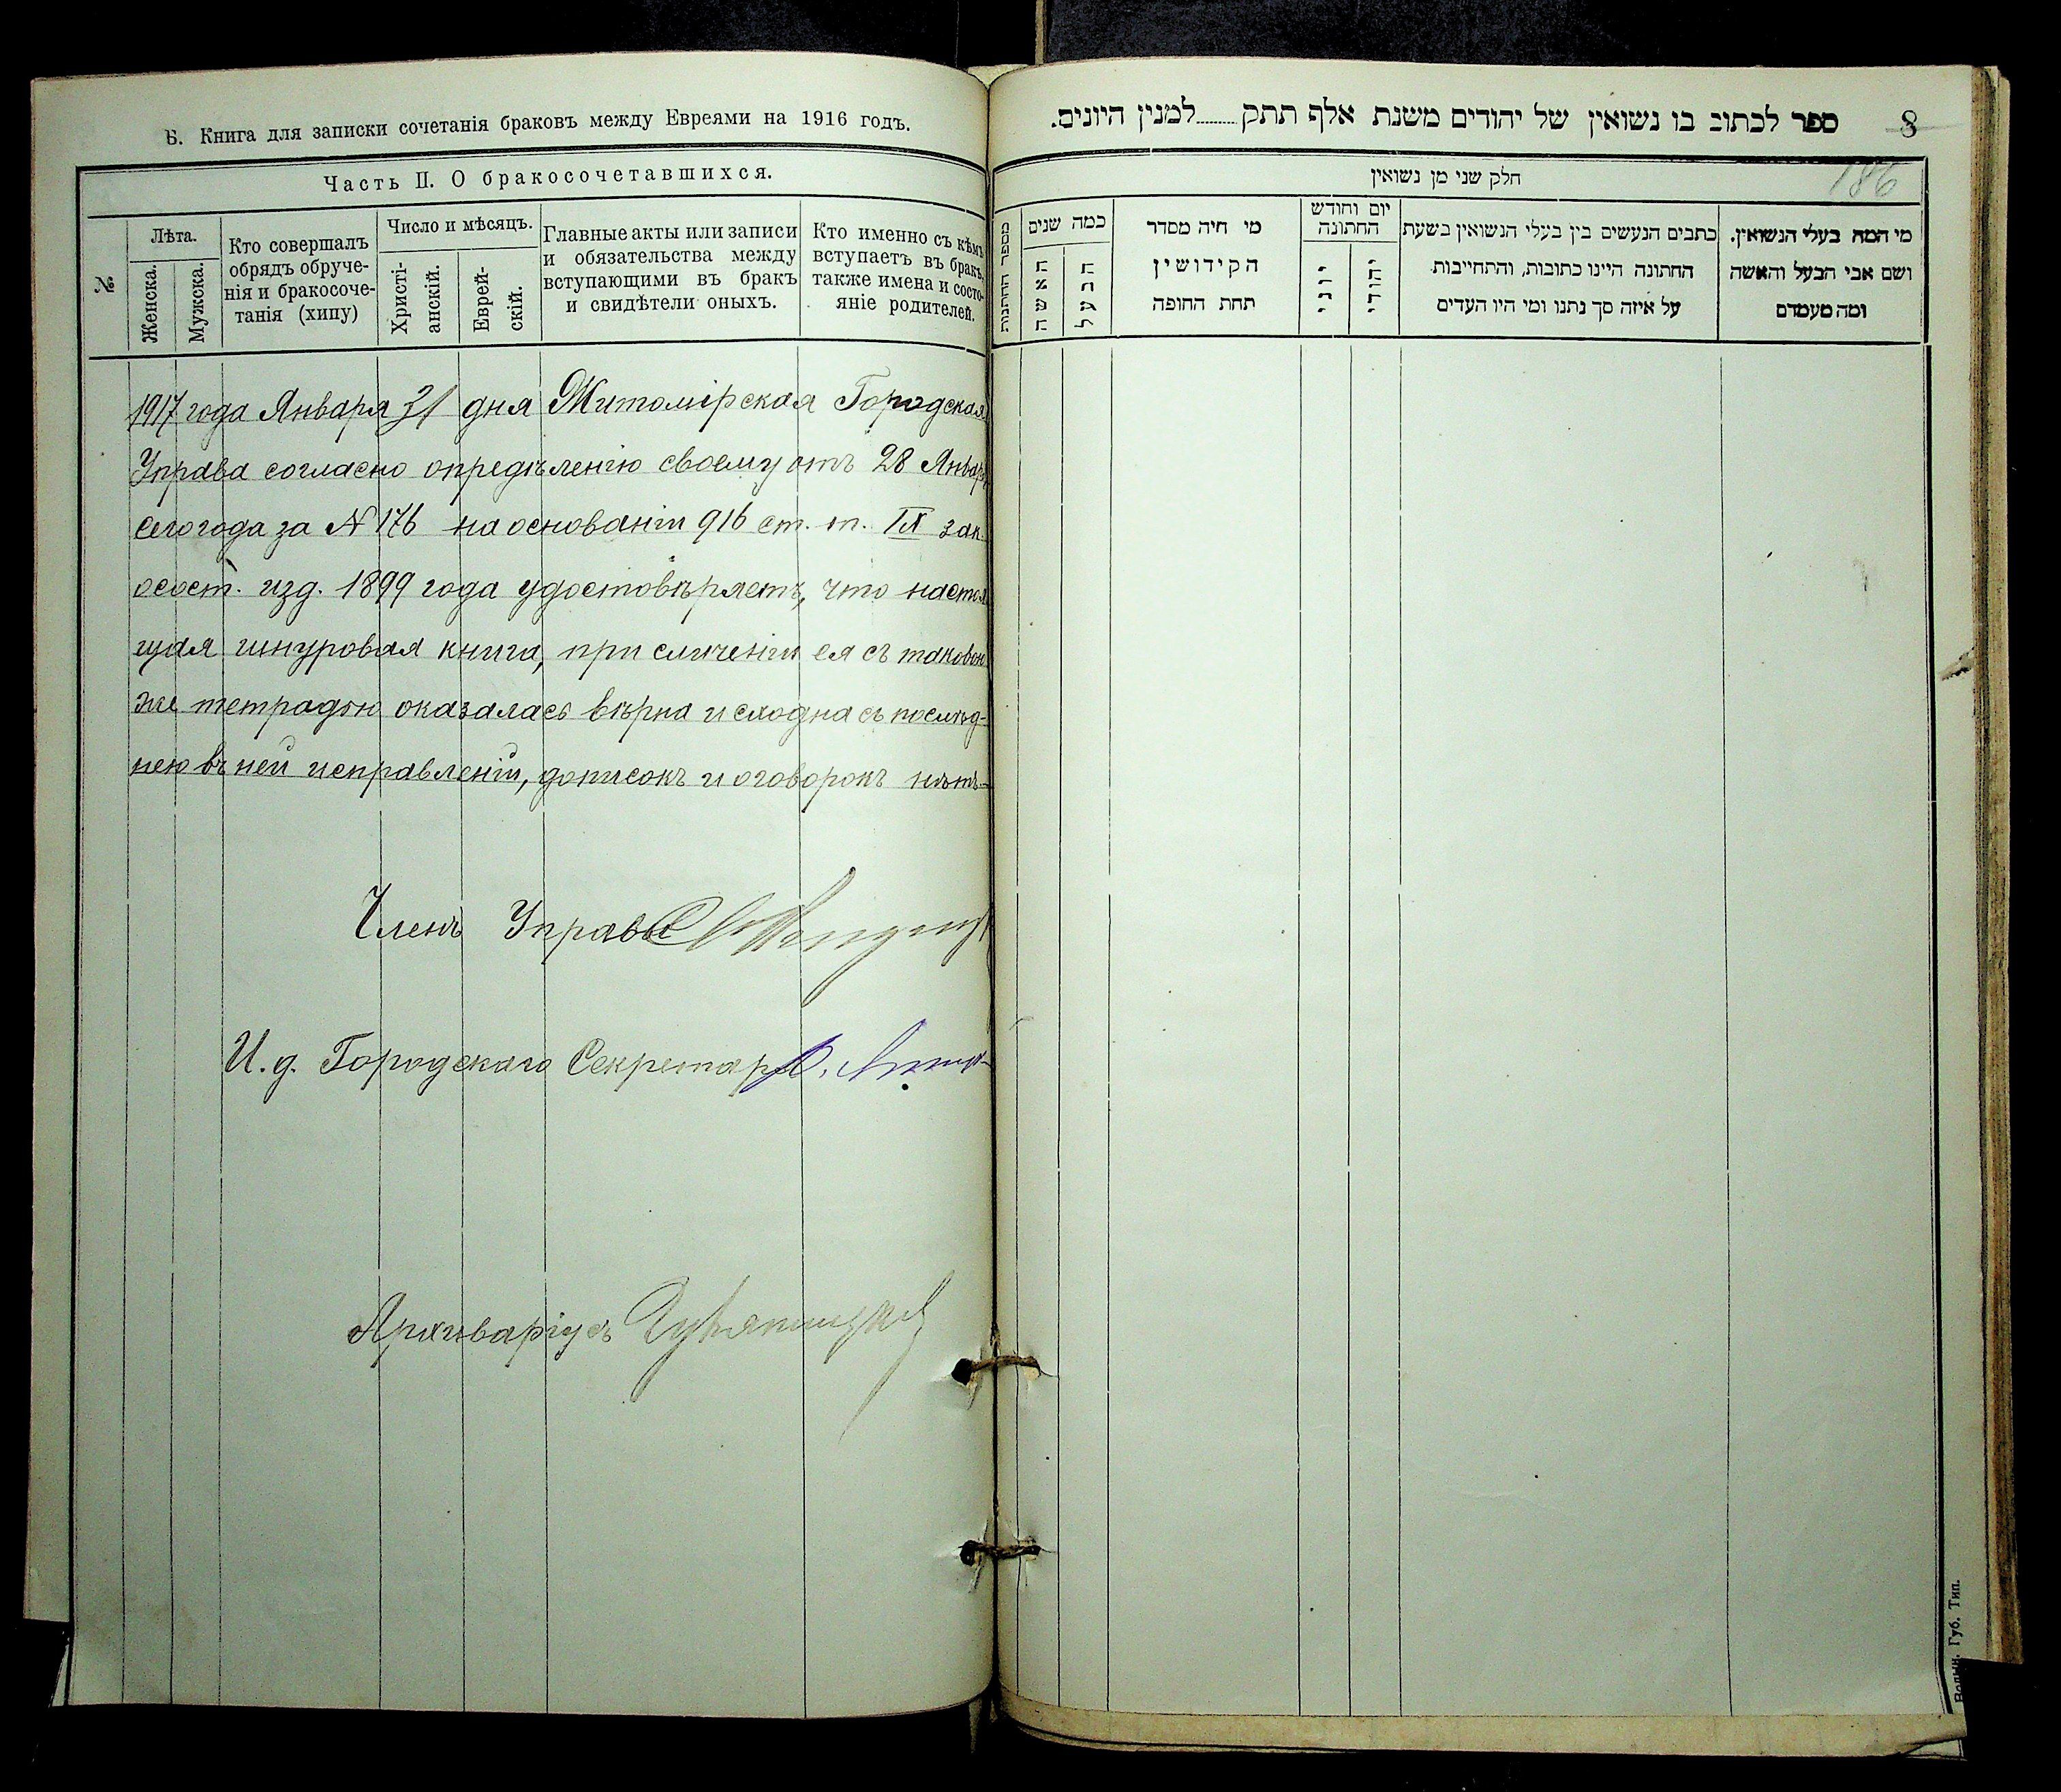 Б. Книга для записки сочетанія браковъ между Евреями на 1916 годъ.
Часть II. О бракосочетавшихся.
№
Лѣта.
Женска.
Мужска.
Кто совершалъ
обрядъ обруче-
нія и бракосоче-
танія (хипу)
Число и мѣсяцъ.
Христі-
анскій.
Еврей-
скій.
Главные акты или записи
и обязательства между
вступающими въ бракъ
и свидѣтели оныхъ.
Кто именно съ кѣмъ
вступаетъ въ бракъ,
также имена и состо-
яніе родителей.
1917 года Января 31 дня Житомірская Городская
Управа согласно опредѣленію своему отъ 28 Января
сего года за N 176 на основаніи 916 ст. т. IX зак.
осост. изд. 1899 года удостовѣряетъ, что настоя
щая шнуровая книга, при сличеніи ея съ таковою
же тетрадью оказалась вѣрна и сходна съ послѣд-
нею въ ней исправленій, дописокъ и оговорокъ нѣтъ.
Членъ Управы
И. д. Городскаго Секретаря
Архиваріусъ
8
ספר לכתוב בו נשואין של יהודים משנת אלף תתק........למנין היונים.
186
חלק שני מן נשואין
מי המה בעלי הנשואין.
ושם אבי הבעל והאשה
ומה מעמדם
כתבים הנעשים בין בעלי הנשואין בשעת
החתונה היינו כתובות, והתחייבות
על איזה סך נתנו ומי היו העדים
יום וחודש
החתונה
יהודי
יוני
מי חיה מסדר
הקידושין
תחת החופה
כמה שנים
הבעל
האשה
מספר החתונות
Волын. Губ. Тип.